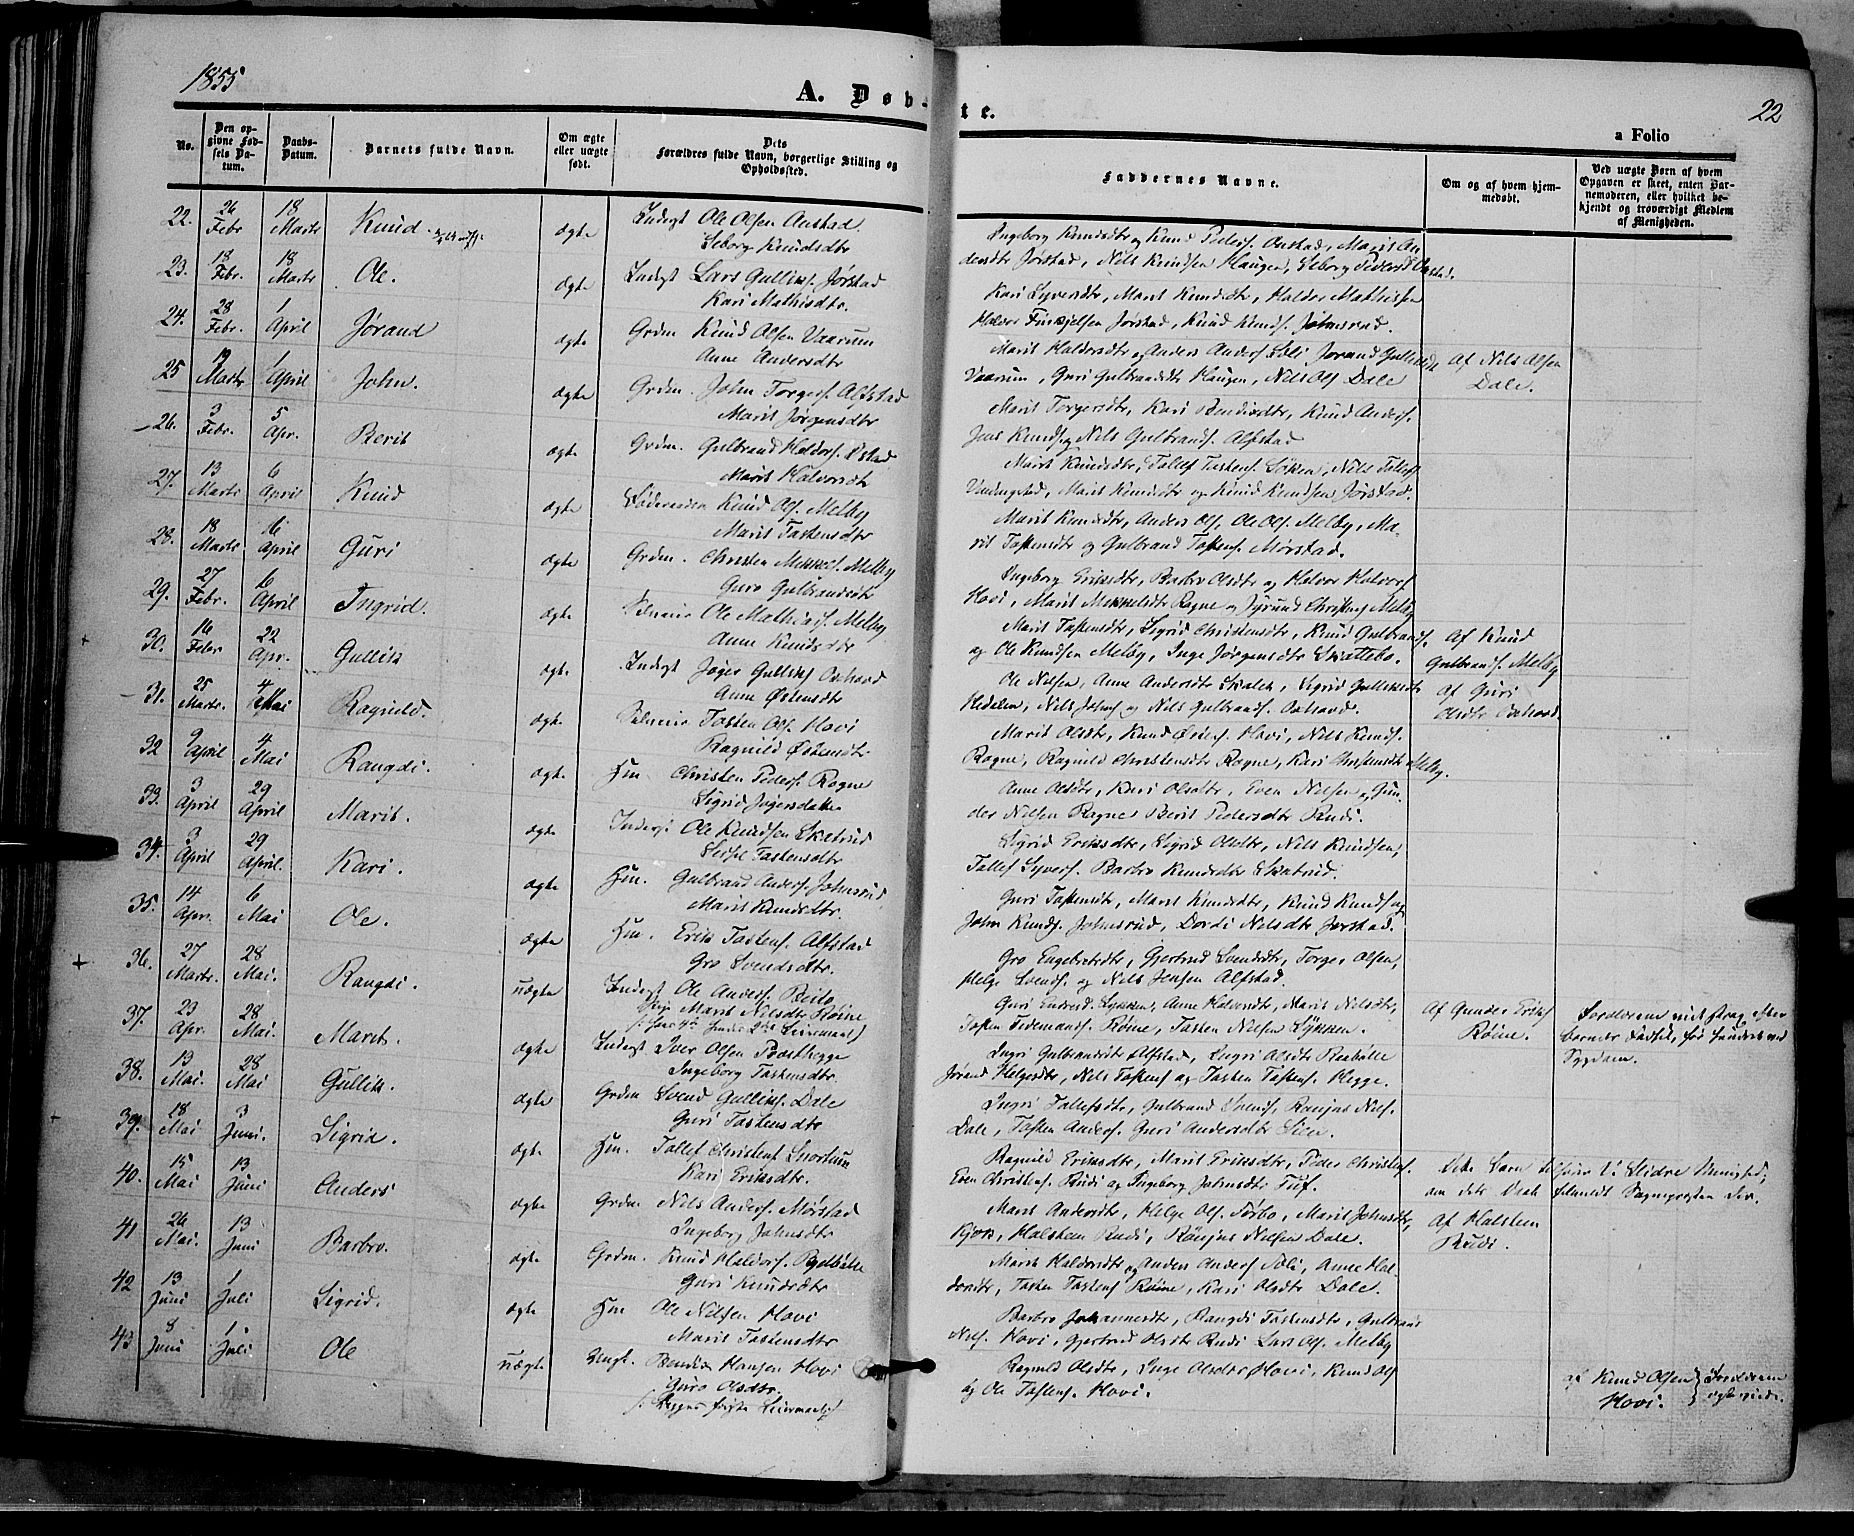 1855
A. Døbte.
22
a Folio
No.
Den opgivne Fødsels Datum.
Daabs-Datum.
Barnets fulde Navn.
Om ægte eller uægte født.
Dets Forældres fulde Navn, borgerlige Stilling og Opholdssted.
Faddernes Navne.
Om og af hvem hjemmedøbt.
Ved uægte Børn af hvem Opgaven er skeet, enten Barnemoderen, eller hvilket bekjendt og troværdigt Medlem af Menigheden.
22. 26 Febr 18 Marts Knud ægte Inderst Ole Olsen Onstad
Seborg Knudsdtr
Ingeborg Knudsdtr og Knud Peders. Onstad, Marit An-
dersdtr Jørstad, Nils Knudsen Haugen, Seborg Pedersd Onstad.
23. 18 Febr. 18 Marts Ole. ægte Inderst Lars Gulliks. Jørstad
Kari Mathisdtr.
Kari Syversdtr, Marit Knudsdtr, Haldor Mathisen
Halvor Finkjelsen Jørstad, Knud Knuds. Johnsrud.
24. 28 Febr. 1 April Jørand ægte Grdm Knud Olsen Vaarum
Anne Andersdtr
Marit Haldorsdtr og Anders Anders. Sebli Jørand Gulliksdtr
Vaarum, Guri Gulbrandsdtr Haugen, Nils Ols Dale
Af Nils Olsen
Dale.
25 19 Marts 1 April John. ægte Grdm. John Torgers. Alfstad
Marit Jørgensdtr
Marit Torgersdtr, Kari Bendiksdtr, Knud Anders.
Jens Knuds. og Nils Gulbrands. Alfstad
26. 3 Febr. 5 Apr. Berit ægte Grdm. Gulbrand Haldors. Østad
Marit Halvorsdtr
Marit Knudsdtr, Tollef Tostens. Løken, Nils Tollefs.
Vindingstad, Marit Knudsdtr og Knud Knudsen Jørstad.
27. 13 Marts 6 April Knud ægte Knud Ols. Melby
Marit Tostensdtr
Marit Knudsdtr, Anders Ols, Ole Ols. Melby, Ma-
rit Tostensdtr og Gulbrand Tostens. Mørstad.
28. 18 Marts 6 April Guri ægte Grdm. Christen Mikkels. Melby
Guro Gulbrandsdtr
Ingeborg Eriksdtr, Barbro Olsdtr og Halvor Halvors
Hovi, Marit Mikkelsdtr Rogne og Jørund Christens. Melby
29. 27 Febr. 6 April Ingrid. ægte Ole Mathias. Melby
Anne Knudsdtr
Marit Tostensdtr, Sigrid Christensdtr, Knud Gulbrands.
og Ole Knudsen Melby, Inge Jørgensdtr Skattebo.
Af Knud
Gulbrands. Melby
30. 16 Febr 22 Apr. Gullik ægte Inderst Joger Gulliks
Anne Østensdtr
Ole Nilsen, Anne Andersdtr, Sigrid Gulliksdtr
Hedalen, Nils Johns. og Nils Gulbrands.
af Guri
Olsdtr
31. 25 Marts. 4 Mai Ragnild. ægte Tosten Ols. Hovi
Ragnild Østensdtr
Marit Olsdtr, Knud Østens. Hovi, Nils Knuds.
Rogne, Ragnild Christensdtr Rogne, Kari Christensdtr Melby.
32 9 April 4 Mai Rangdi. ægte Hm. Christen Peders. Rogne
Sigrid Jogersdatter
Anne Olsdtr, Kari Olsdtr, Even Nilsen, Gun-
der Nilsen Rogne Berit Pedersdtr Rudi.
33. 3 April 29 April Marit. ægte Inderst Ole Knudsen Skatrud
Tostensdtr
Sigrid Eriksdtr, Sigrid Olsdtr, Nils Knudsen,
Tollef Syvers. Barbro Knudsdtr Skatrud.
34. 3 April 29 April. Kari. ægte Hm. Gulbrand Anders. Johnsrud
Marit Knudsdtr.
Guri Tostensdtr, Marit Knudsdtr, Knud Knuds og
John Knuds. Johnsrud, Dordi Nilsdtr Jørstad.
35. 14 Apr. 6 Mai Ole. ægte Hm. Erik Tostens. Alfstad
Gro Svendsdtr.
Gro Engebretsdtr, Gjertrud Svendsdtr, Torger Olsen,
Helge Svends. og Nils Jensen Alfstad.
36. 27 Marts. 28 Mai. Rangdi. uægte Inderst Ole Anders. Beito
Marit Nilsdtr Røine
Guri Endresd. Lykken, Anne Halvorsdtr, Marit Nilsdtr,
Tosten Tidemands. Røine, Tosten Nilsen Lykken.
Af Gunder Eriks
Røine.
Forældrene
Barnets Fødsel, før
Sygdom.
37. 23 Apr. 28 Mai. Marit. ægte Inderst Iver Olsen Bosthegge
Ingeborg Tostensdtr.
Ingri Gulbrandsdtr Alfstad, Ingri Olsdtr
Jørand Helgesdtr, Nils Tostens og Tosten Tostens. Hegge.
38. 13 Mai. 28 Mai Gullik. ægte Grdm Svend Gulliks. Dale
Guri Tostensdtr
Ingri Tollefsdtr, Gulbrand Svends, Nils.
Dale, Tosten Anders. Guri Andersdtr Lien.
39. 28 Mai 3 Juni. Sigrid. ægte Hm. Tollef Christens
Kari Eriksdtr.
Ragnild Eriksdtr, Marit Eriksdtr, Peder Christens.
Even Christens. Rudi og Ingeborg Johnsdtr Tuf.
Dette Barn
om dets Daab
Slidre Menighed,
Sognepræsten
40. 15 Mai 13 Juni Anders ægte Grdm. Nils Anders. Mørstad
Ingeborg Johnsdtr
Marit Andersdtr, Helge Ols. Førbo, Marit Johnsdtr,
Kjøs, Halsten Rudi, Nilsen Dale.
Af Halsten
Rudi.
41 26 Mai. 13 Juni Barbro. ægte Grdm. Knud Haldors.
Guri Knudsdtr
Marit Haldorsdtr og Anders Anders Sebli, Anne Hal-
dorsdtr, Tosten Tostens Røine, Kari Olsdtr Dale.
42 13 Juni 1 Juli Sigrid. ægte Hm Ole Nilsen Hovi
Marit Tostensdtr
Barbro Johannesdtr, Rangdi Tostensdtr, Gulbrand
Nils. Hovi, Gjertrud Olsdtr Rudi Lars Ols. Melby
43 8 Juni 1 Juli Ole uægte Ungk. Bendik Hansen Hovi
Guro Olsdtr.
Ragnild Olsdtr, Inge Olsdtr Hovi, Knud Ols
og Ole Tostens. Hovi.
af Knud Olsen
Hovi.
Forældrene